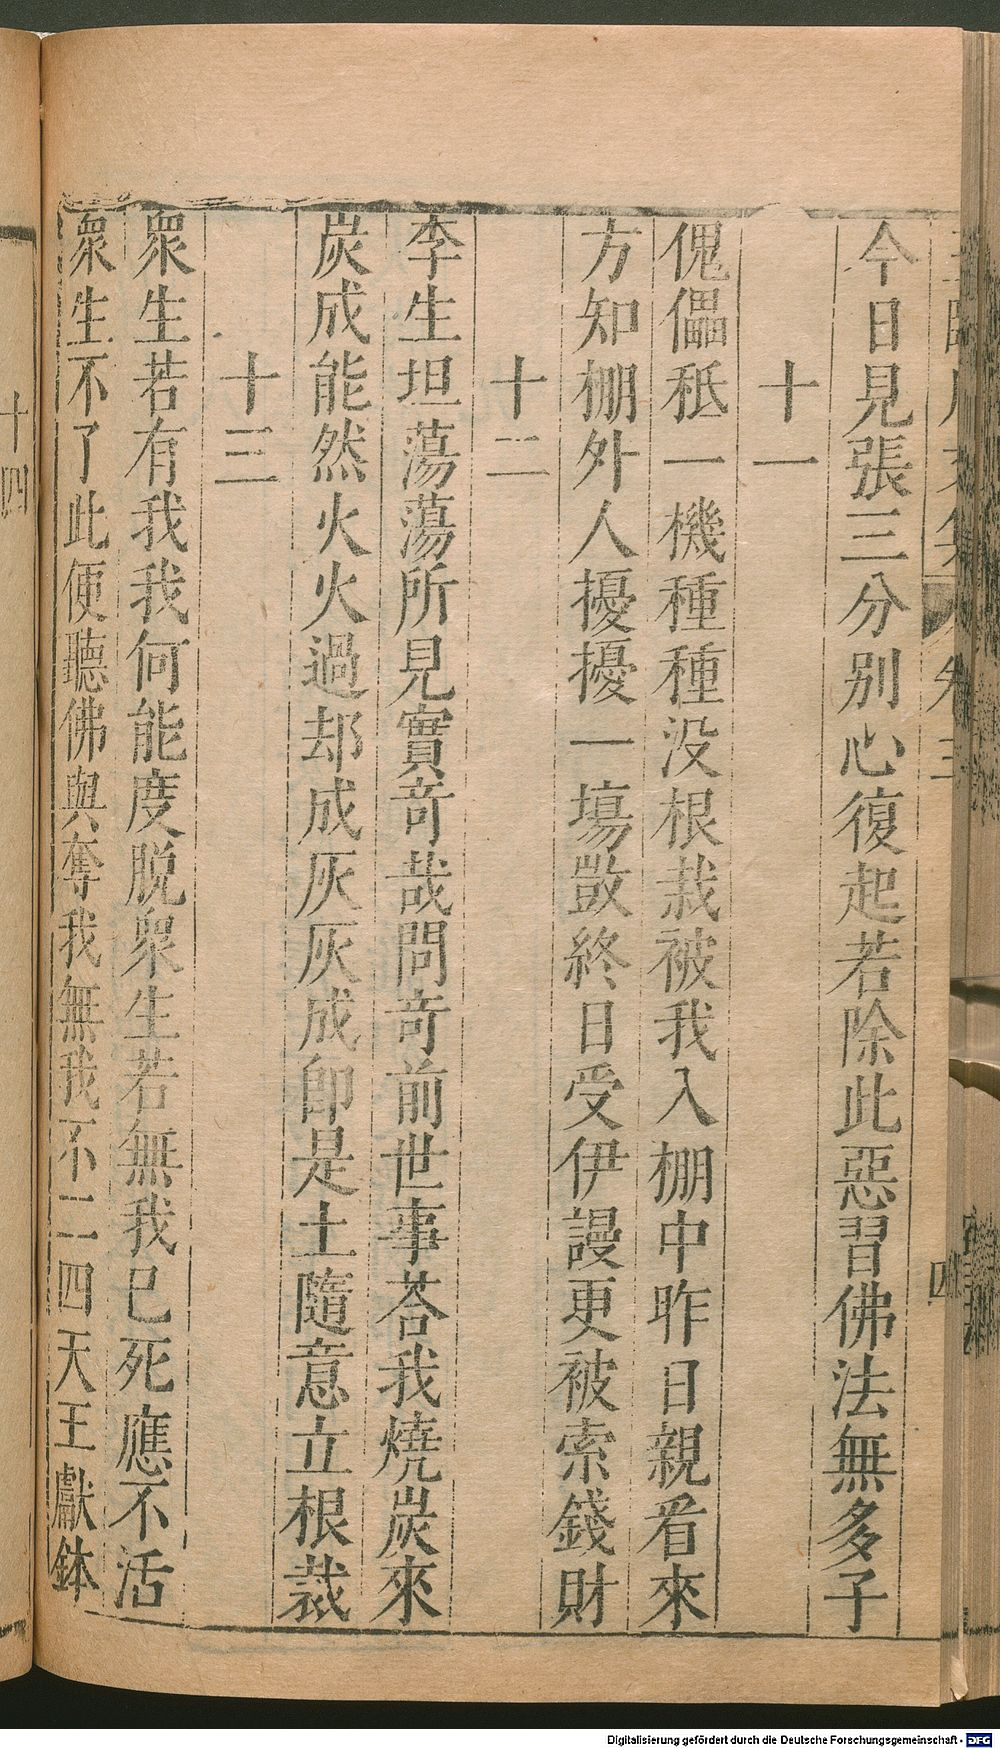 今日見張三分別心復起若除此惡習佛法無多子
十一
傀儡秪一機種種没根栽被我入棚中昨日親看來
方知棚外人擾擾一塲獃終日受伊謾更被索錢財
十二
李生坦蕩蕩所見實竒哉問竒前世事荅我燒炭來
炭成能然火火過却成灰灰成即是土隨意立根栽
十三
衆生若有我我何能度脱衆生若無我已死應不活
衆生不了此便聽佛與奪我無我不二四天王獻鉢
十四
四
Digitalisierung gefördert durch die Deutsche Forschungsgemeinschaft - DFG